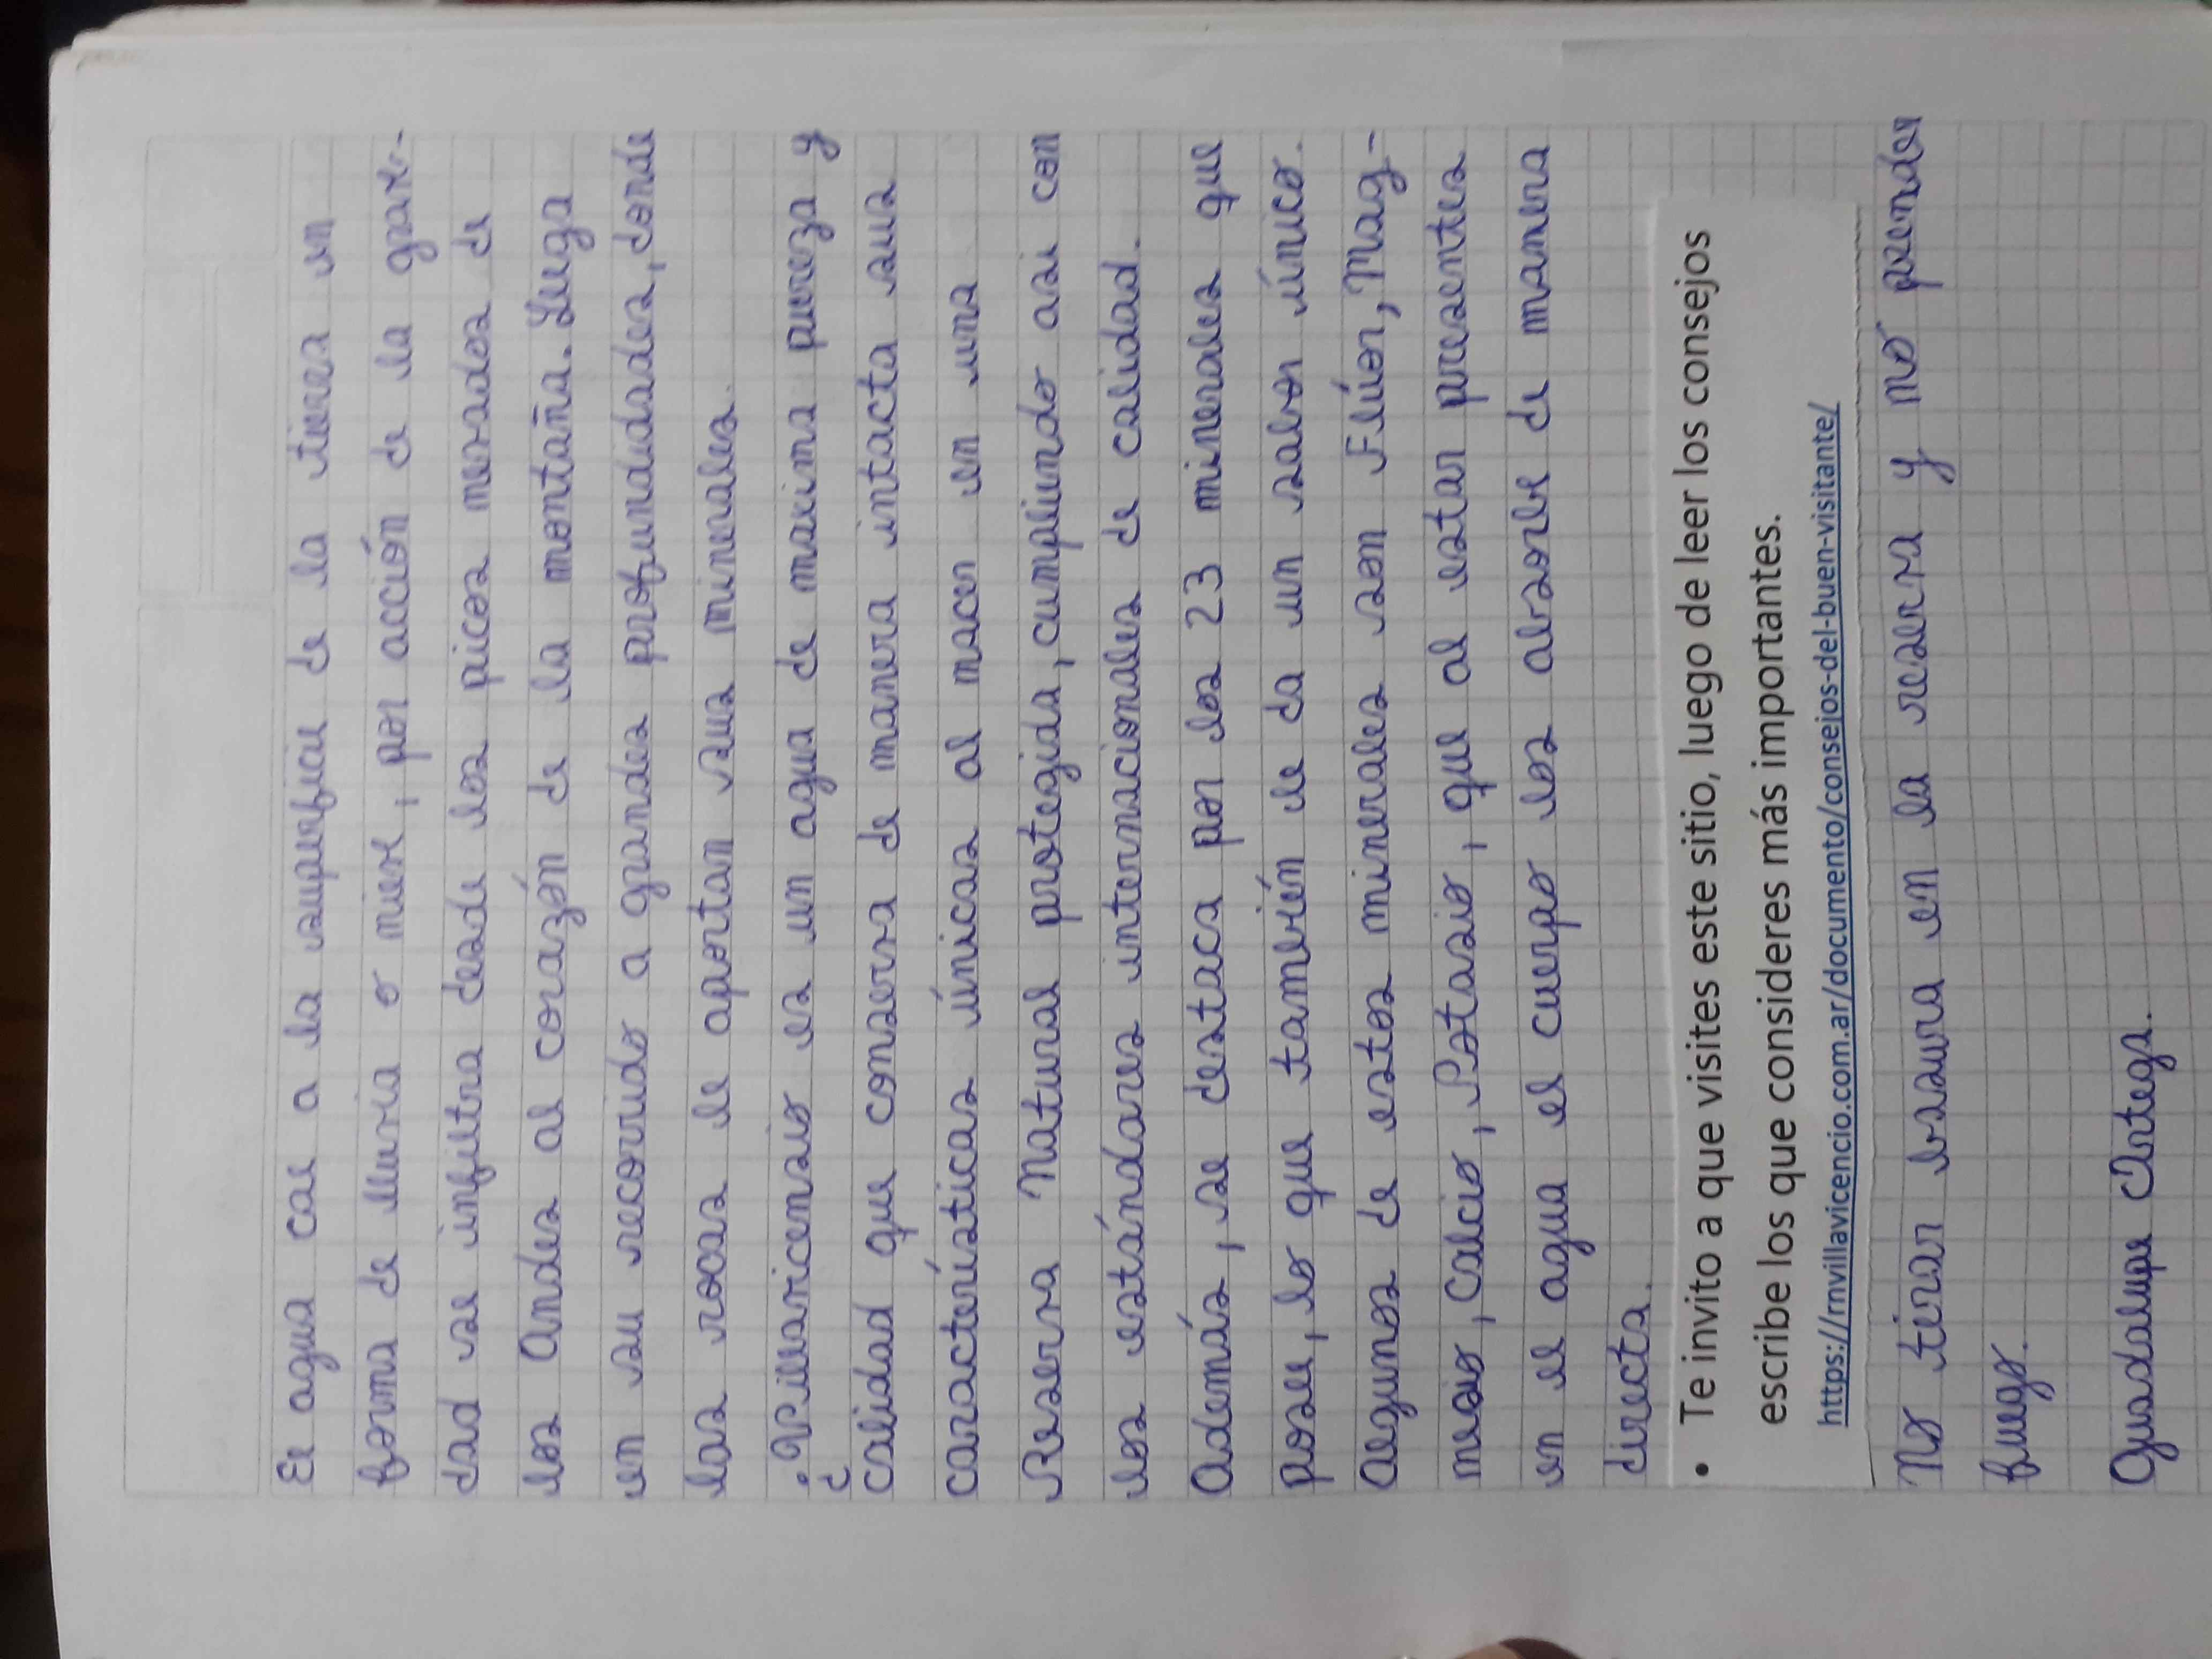 El agua cae a la superficie de la tierra en
forma de lluvia o nieve, por acción de la grave-
dad se infiltra desde los picos nevados de
los Andes al corazón de la montaña. Luego
en su recorrido a grandes profundidades, donde
las rocas le aportan sus minerales.
. Villavicensio es un agua de maxima pureza y
c
calidad que conserva de manera intacta sus
caracteríasticas únicas al nacer en una
Reserva Natural protegida, cumpliendo asi con
los estándares internacionales de calidad.
Además, se destaca por los 23 minerales que
posee, lo que también le da un sabor único.
Algunos de estos minerales son Flúor, Mag-
nesio, Calcio, Potasio, que al estar presentes
en el agua el cuerpo los absorbe de manera
directa.
• Te invito a que visites este sitio, luego de leer los consejos
escribe los que consideres más importantes.
https://rnvillavicencio.com.ar/documento/consejos-del-buen-visitante/
No tirar basura en la reserva y no prender
fuego.
Guadalupe Ortega.